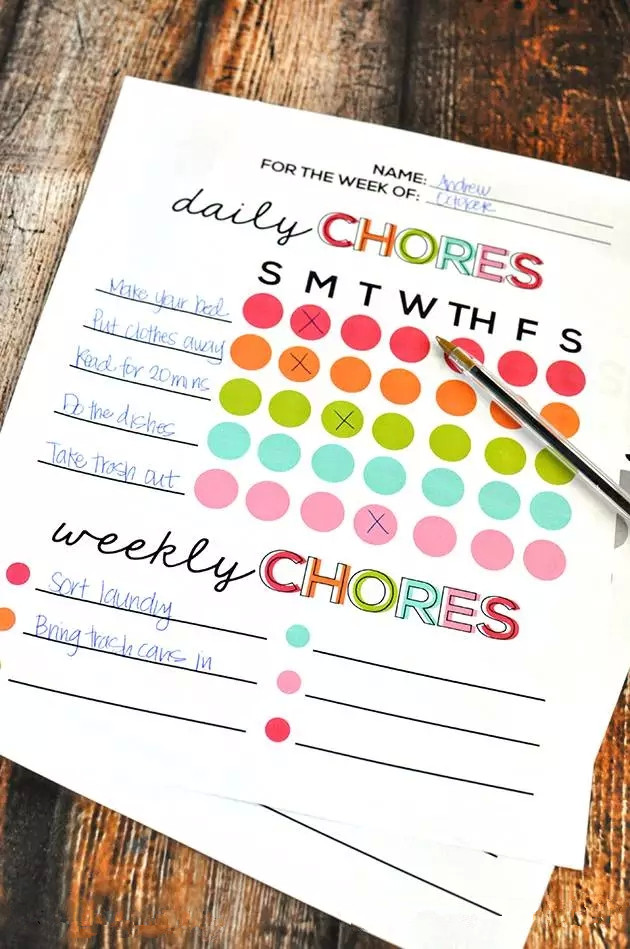 NAME: Andrew
FOR THE WEEK OF: October
daily CHORES
S M T W TH F S
Make your bed
Put clothes away
Read for 20 mins
Do the dishes
Take trash out
weekly CHORES
Sort laundry
Bring trash cans in